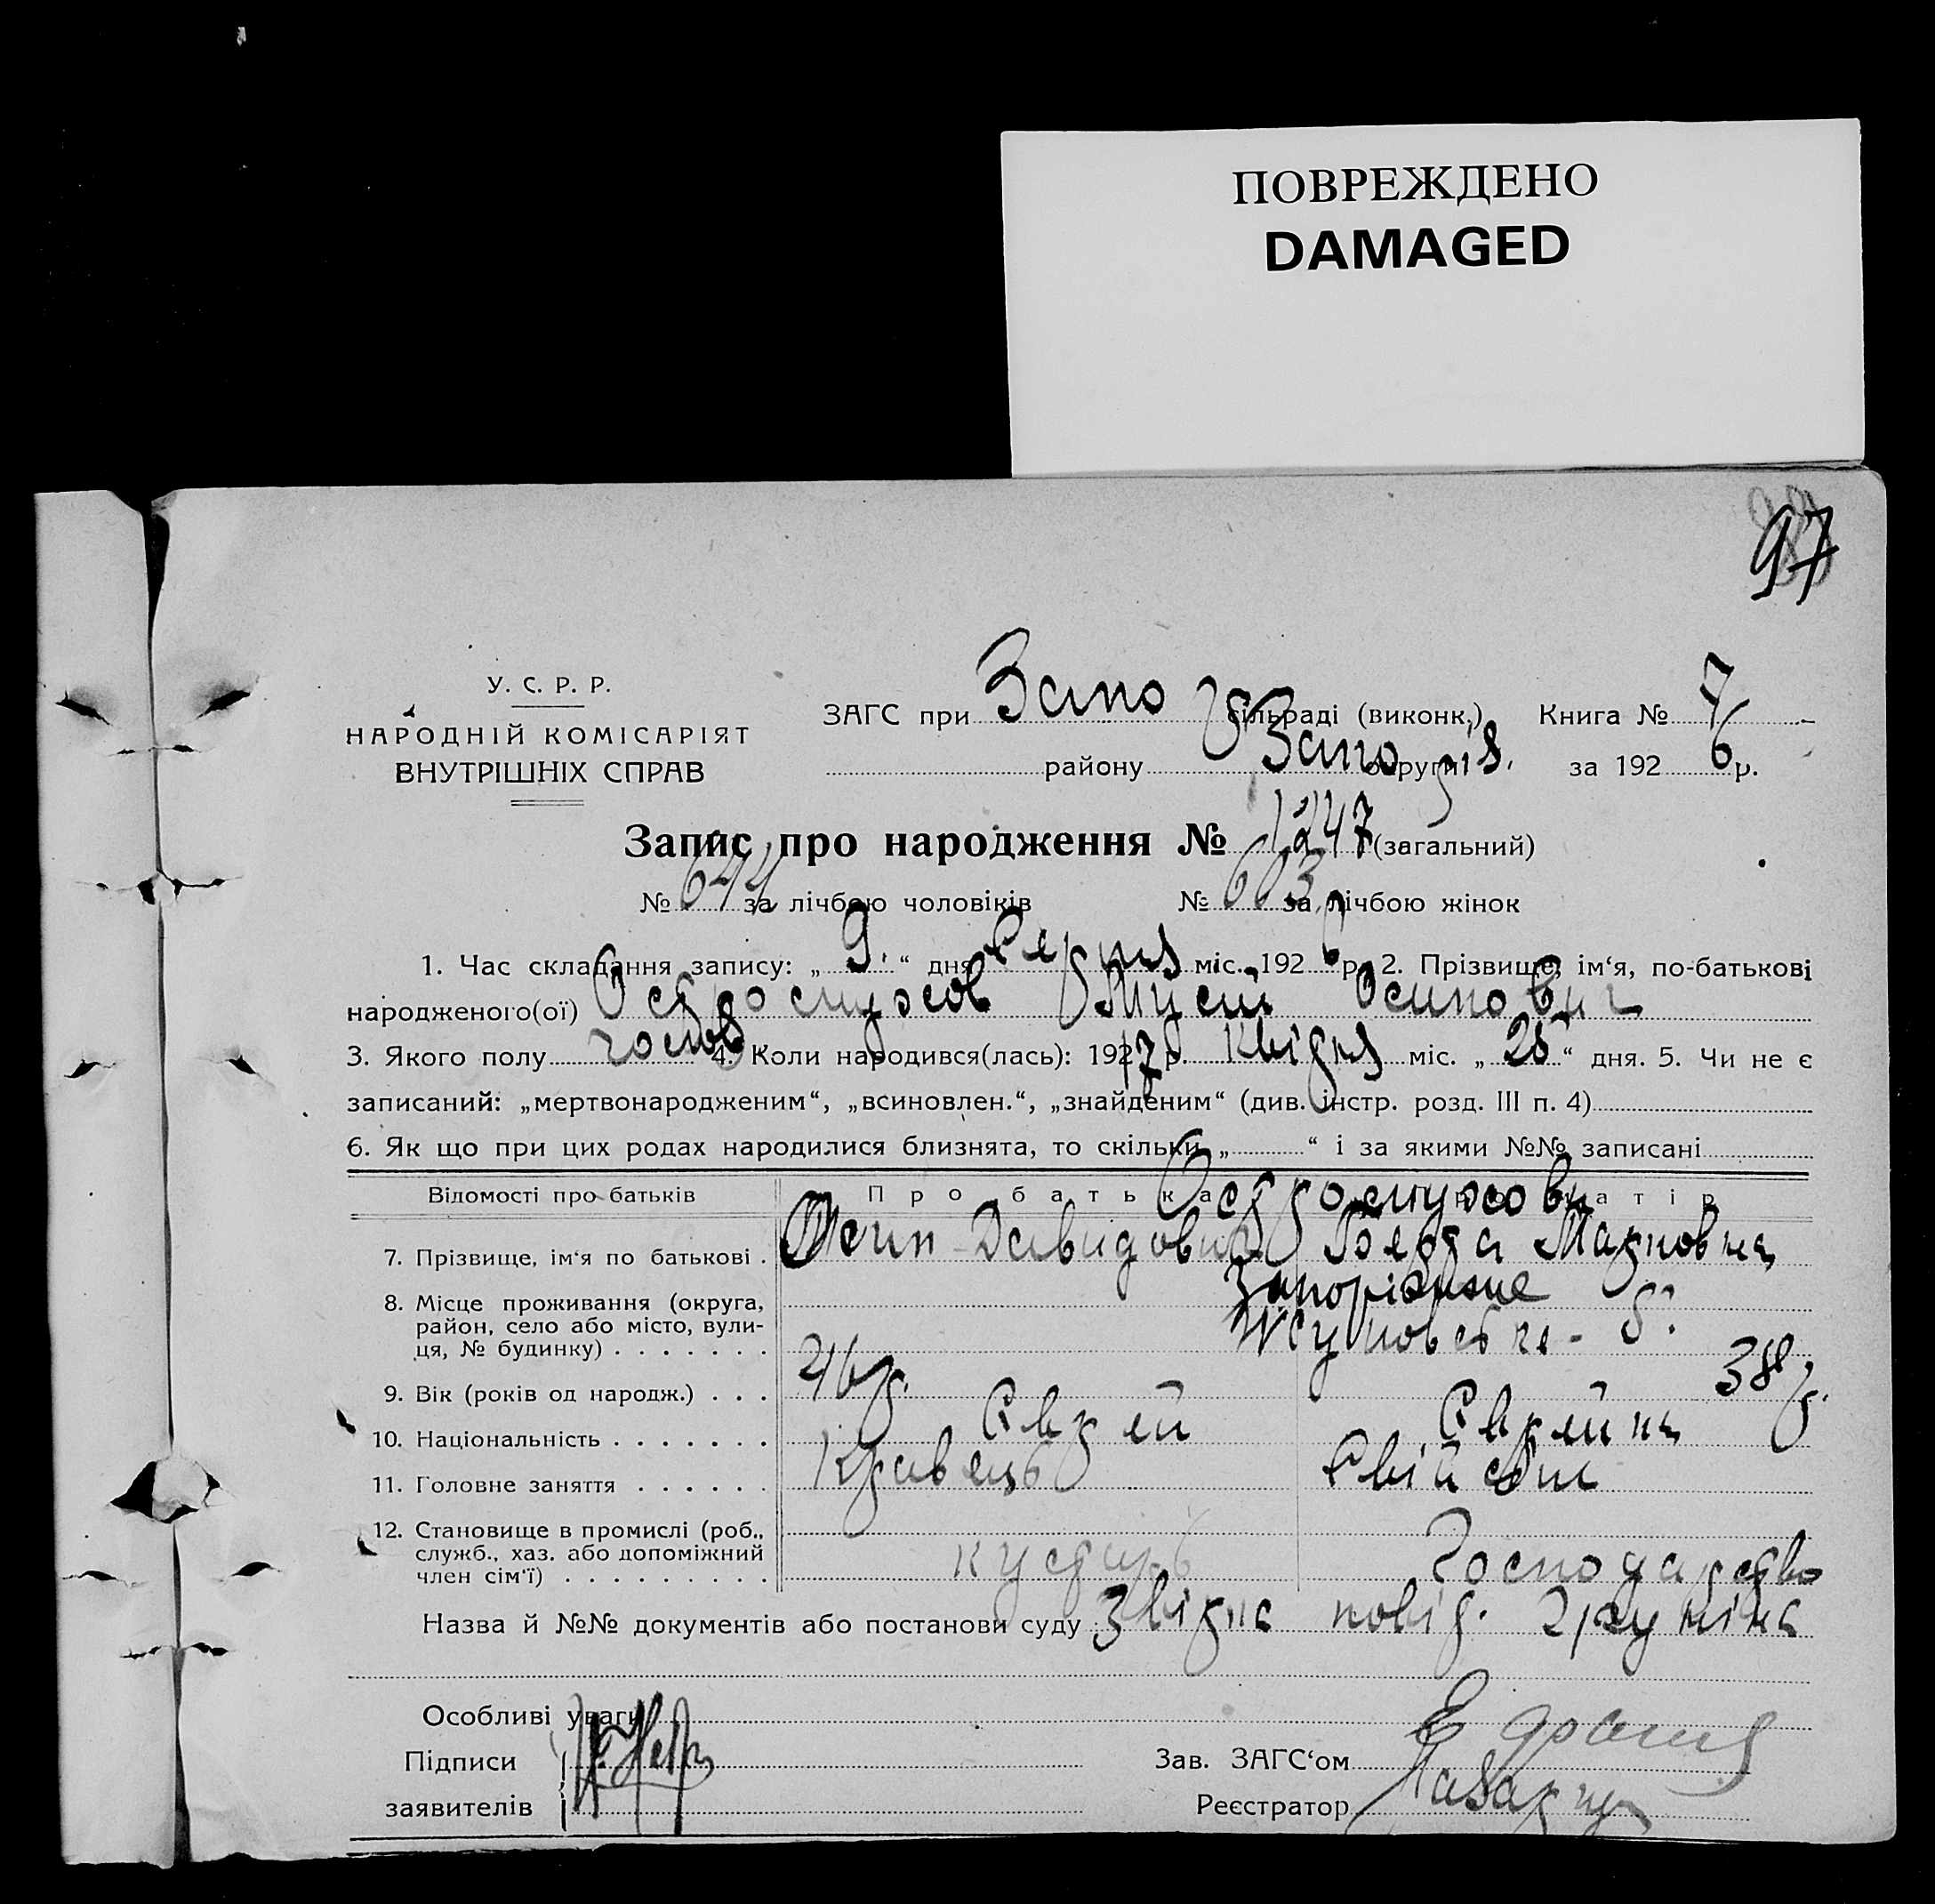 ПОВРЕЖДЕНО
DAMAGED
97
У. С. Р. Р.
НАРОДНІЙ КОМІСАРІЯТ
ВНУТРІШНІХ СПРАВ
ЗАГС при Запо сільраді (виконк.) Книга № 7
району Запо округи за 1926 р.
Запис про народження № 1247 (загальний)
№ 644 за лічбою чоловіків № 603 за лічбою жінок
1. Час складання запису: „9.“ дня Серпня міс. 1926 р. 2. Прізвище, ім‘я, по-батькові
народженого(ої) Остросмухов Осипович
3. Якого полу 4. Коли народився(лась): 1917 р. Квідня міс. „28“ дня. 5. Чи не є
записаний: „мертвонародженим“, „всиновлен.“, „знайденим“ (див. інстр. розд. III п. 4)
6. Як що при цих родах народилися близнята, то скільки „ “ і за якими №№ записані
Відомості про батьків Про батька Про матір
Остросмухови
7. Прізвище, ім‘я по батькові . Осип Давидович Берта Марковна
8. Місце проживання (округа, Запоріжже
район, село або місто, вули-
ця, № будинку)
9. Вік (років од народж.) . . . 46 р. 38 р.
10. Національність Єврей Єврейка
11. Головне заняття Кравець
12. Становище в промислі (роб.,
служб., хаз. або допоміжний кустарь Господарство
член сім‘ї)
Назва й №№ документів або постанови суду
Особливі уваги
Підписи
Зав. ЗАГС‘ом
заявителів
Реєстратор